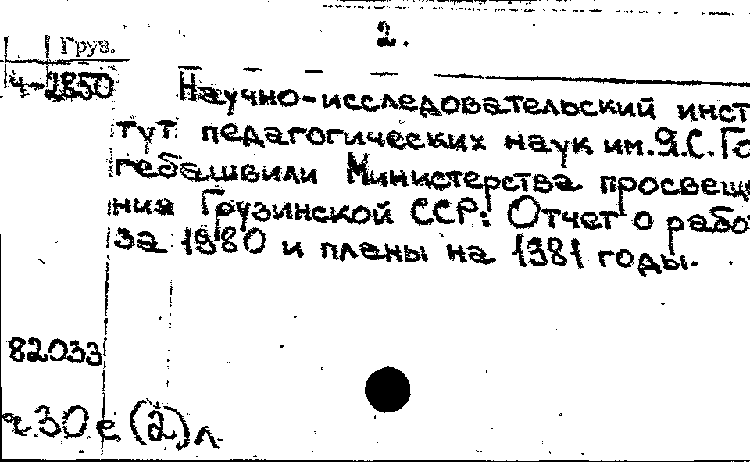 2.
Груз.
Ч-2850
Научно-исследовательский инст
тут педагогических наук им. Я.С. Го
гебашвили Министерства просвещ
ния Грузинской ССР: Отчет о рабо
за 1980 и планы на 1981 годы.
82033
ч 30 с (2) л